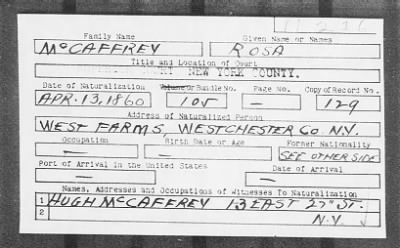 Family Name Given Name or Names
McCAFFREY ROSA
Title and Location of Court
COURT NEW YORK COUNTY.
Date of Naturalization Volume or Bundle No. Page No. Copy of Record No.
APR. 13, 1860 105 — 129
Address of Naturalized Person
WEST FARMS, WESTCHESTER Co. N.Y.
Occupation Birth Date or Age Former Nationality
— — SEE OTHER SIDE
Port of Arrival in the United States Date of Arrival
— —
Names, Addresses and Occupations of Witnesses To Naturalization
1 HUGH McCAFFREY 13 EAST 27th ST.
2 N.Y.